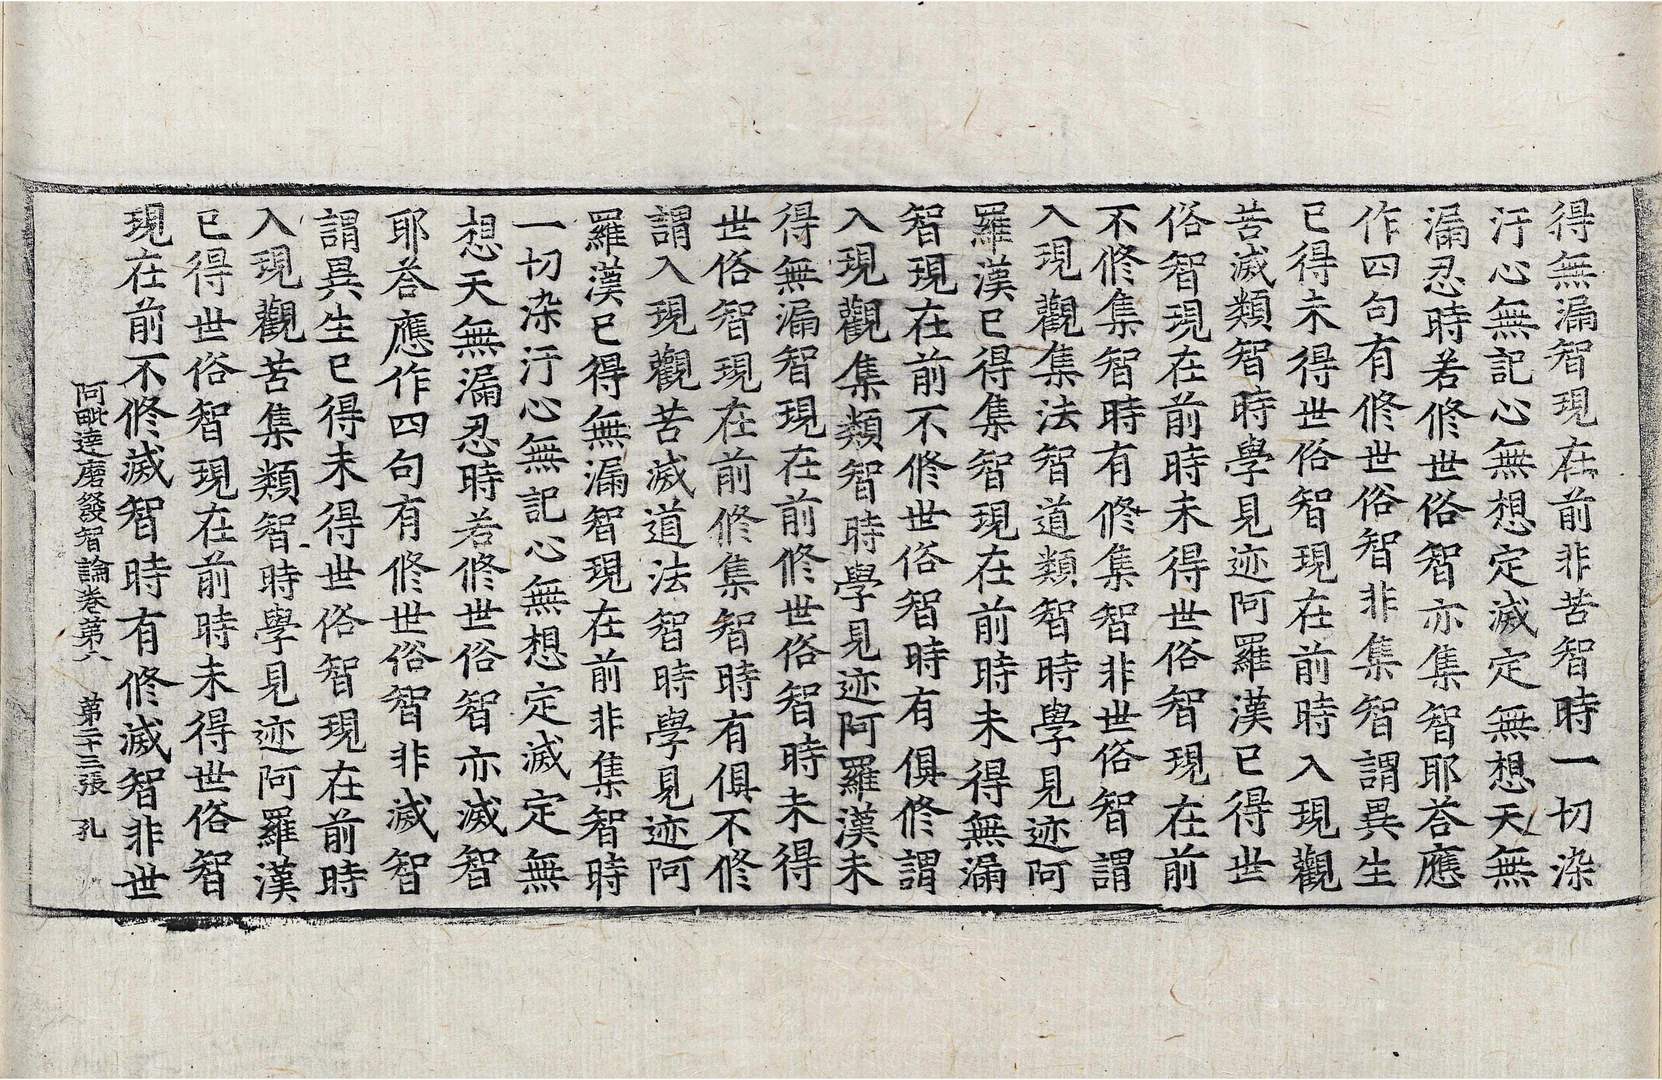 得無漏智現在前非苦智時一切染
汙心無記心無想定滅定無想天無
漏忍時若修世俗智亦集智耶荅應
作四句有修世俗智非集智謂異生
已得未得世俗智現在前時入現觀
苦滅類智時學見迹阿羅漢已得世
俗智現在前時未得世俗智現在前
不修集智時有修集智非世俗智謂
入現觀集法智道類智時學見迹阿
羅漢已得集智現在前時未得無漏
智現在前不修世俗智時有俱修謂
入現觀集類智時學見迹阿羅漢未
得無漏智現在前修世俗智時未得
世俗智現在前修集智時有俱不修
謂入現觀苦滅道法智時學見迹阿
羅漢已得無漏智現在前非集智時
一切染汙心無記心無想定滅定無
想天無漏忍時若修世俗智亦滅智
耶荅應作四句有修世俗智非滅智
謂異生已得未得世俗智現在前時
入現觀苦集類智時學見迹阿羅漢
已得世俗智現在前時未得世俗智
現在前不修滅智時有修滅智非世
阿毗達磨發智論卷第八 第二十三張 孔